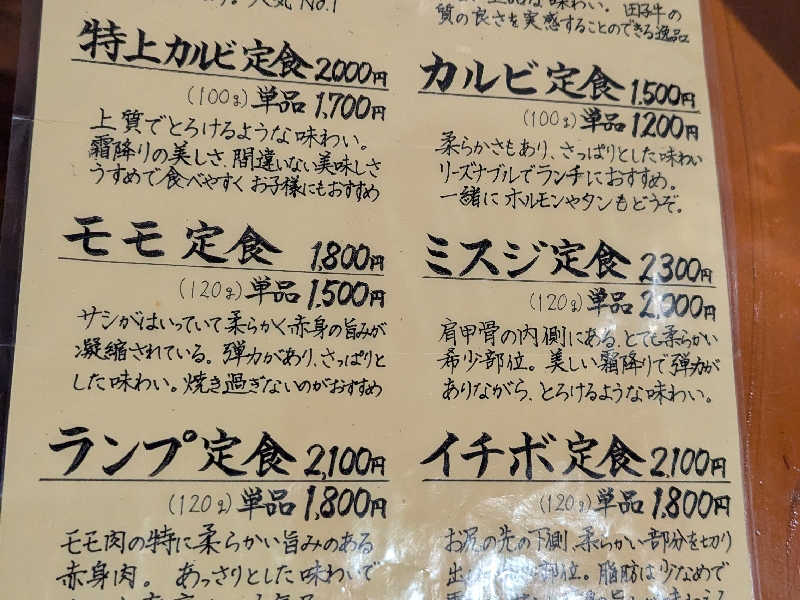 人気No.1
味わい。田子牛の
質の良さを実感することのできる逸品
特上カルビ定食 2,000円
(100g) 単品 1,700円
上質でとろけるような味わい。
霜降りの美しさ、間違いない美味しさ
うすめで食べやすく お子様にもおすすめ
カルビ定食 1,500円
(100g) 単品 1200円
柔らかさもあり、さっぱりとした味わい
リーズナブルでランチにおすすめ。
一緒に ホルモンやタンもどうぞ。
モモ定食 1,800円
(120g) 単品 1,500円
サシがはいっていて柔らかく赤身の旨みが
凝縮されている。弾力があり、さっぱりと
した味わい。焼き過ぎないのがおすすめ
ミスジ定食 2300円
(120g) 単品 2,000円
肩甲骨の内側にある、とても柔らかい
希少部位。美しい霜降りで弾力が
ありながら、とろけるような味わい。
ランプ定食 2,100円
(120g) 単品 1,800円
モモ肉の特に柔らかい旨みのある
赤身肉。あっさりとした味わいで
イチボ定食 2,100円
(120g) 単品 1,800円
お尻の先の下側、柔らかい部分を切り
出した 部位。脂肪は少なめで